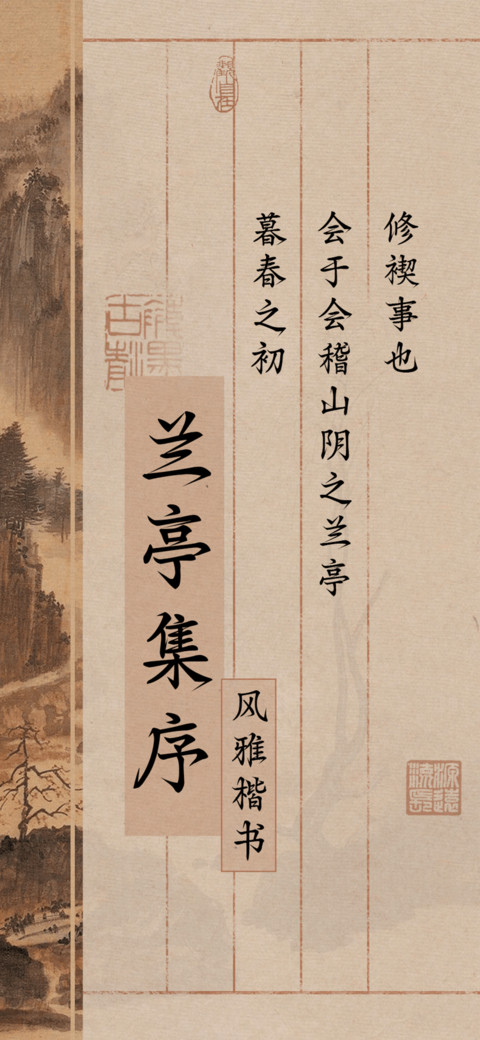 修禊事也
会于会稽山阴之兰亭
暮春之初
兰亭集序
风雅楷书